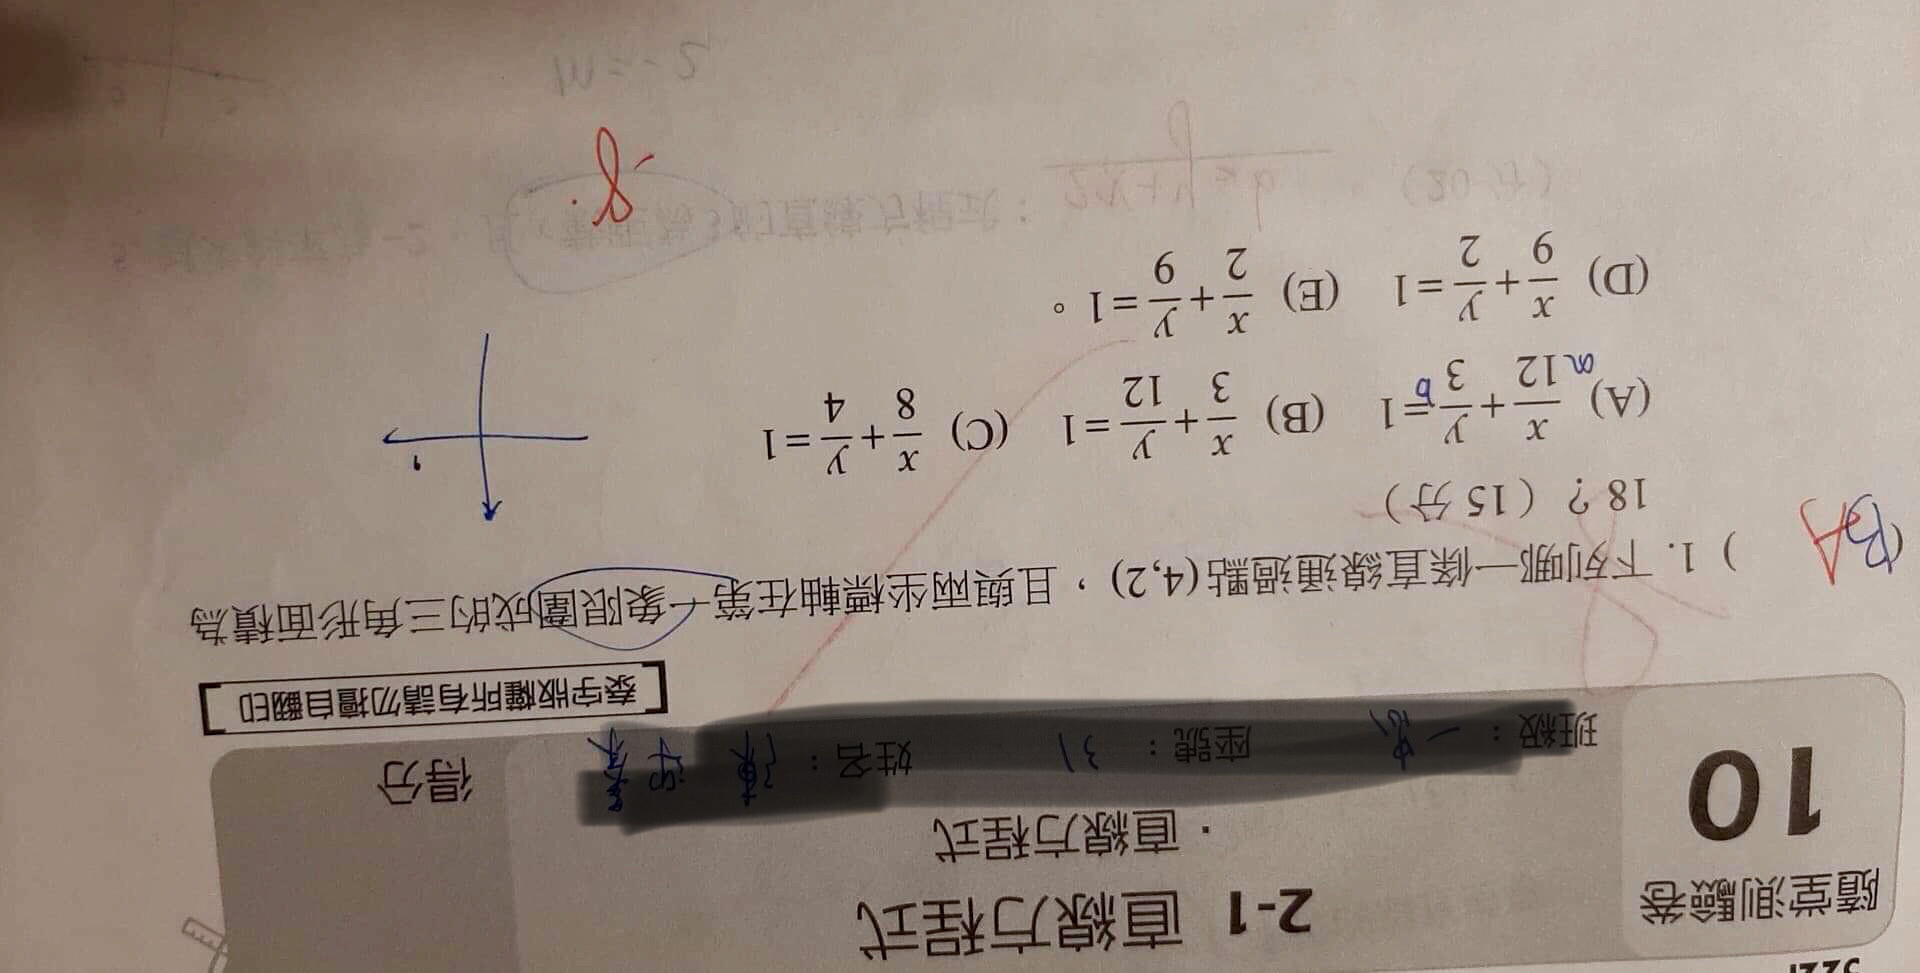 隨堂測驗卷
10
2-1 直線方程式
．直線方程式
班級：
座號：31
姓名：
得分
【泰宇版權所有請勿擅自翻印】
(BA) 1. 下列哪一條直線通過點(4,2)，且與兩坐標軸在第一象限圍成的三角形面積為
18？（15 分）
(A) x/12 + y/3 = 1 (B) x/3 + y/12 = 1 (C) x/8 + y/4 = 1
a b
(D) x/9 + y/2 = 1 (E) x/2 + y/9 = 1。